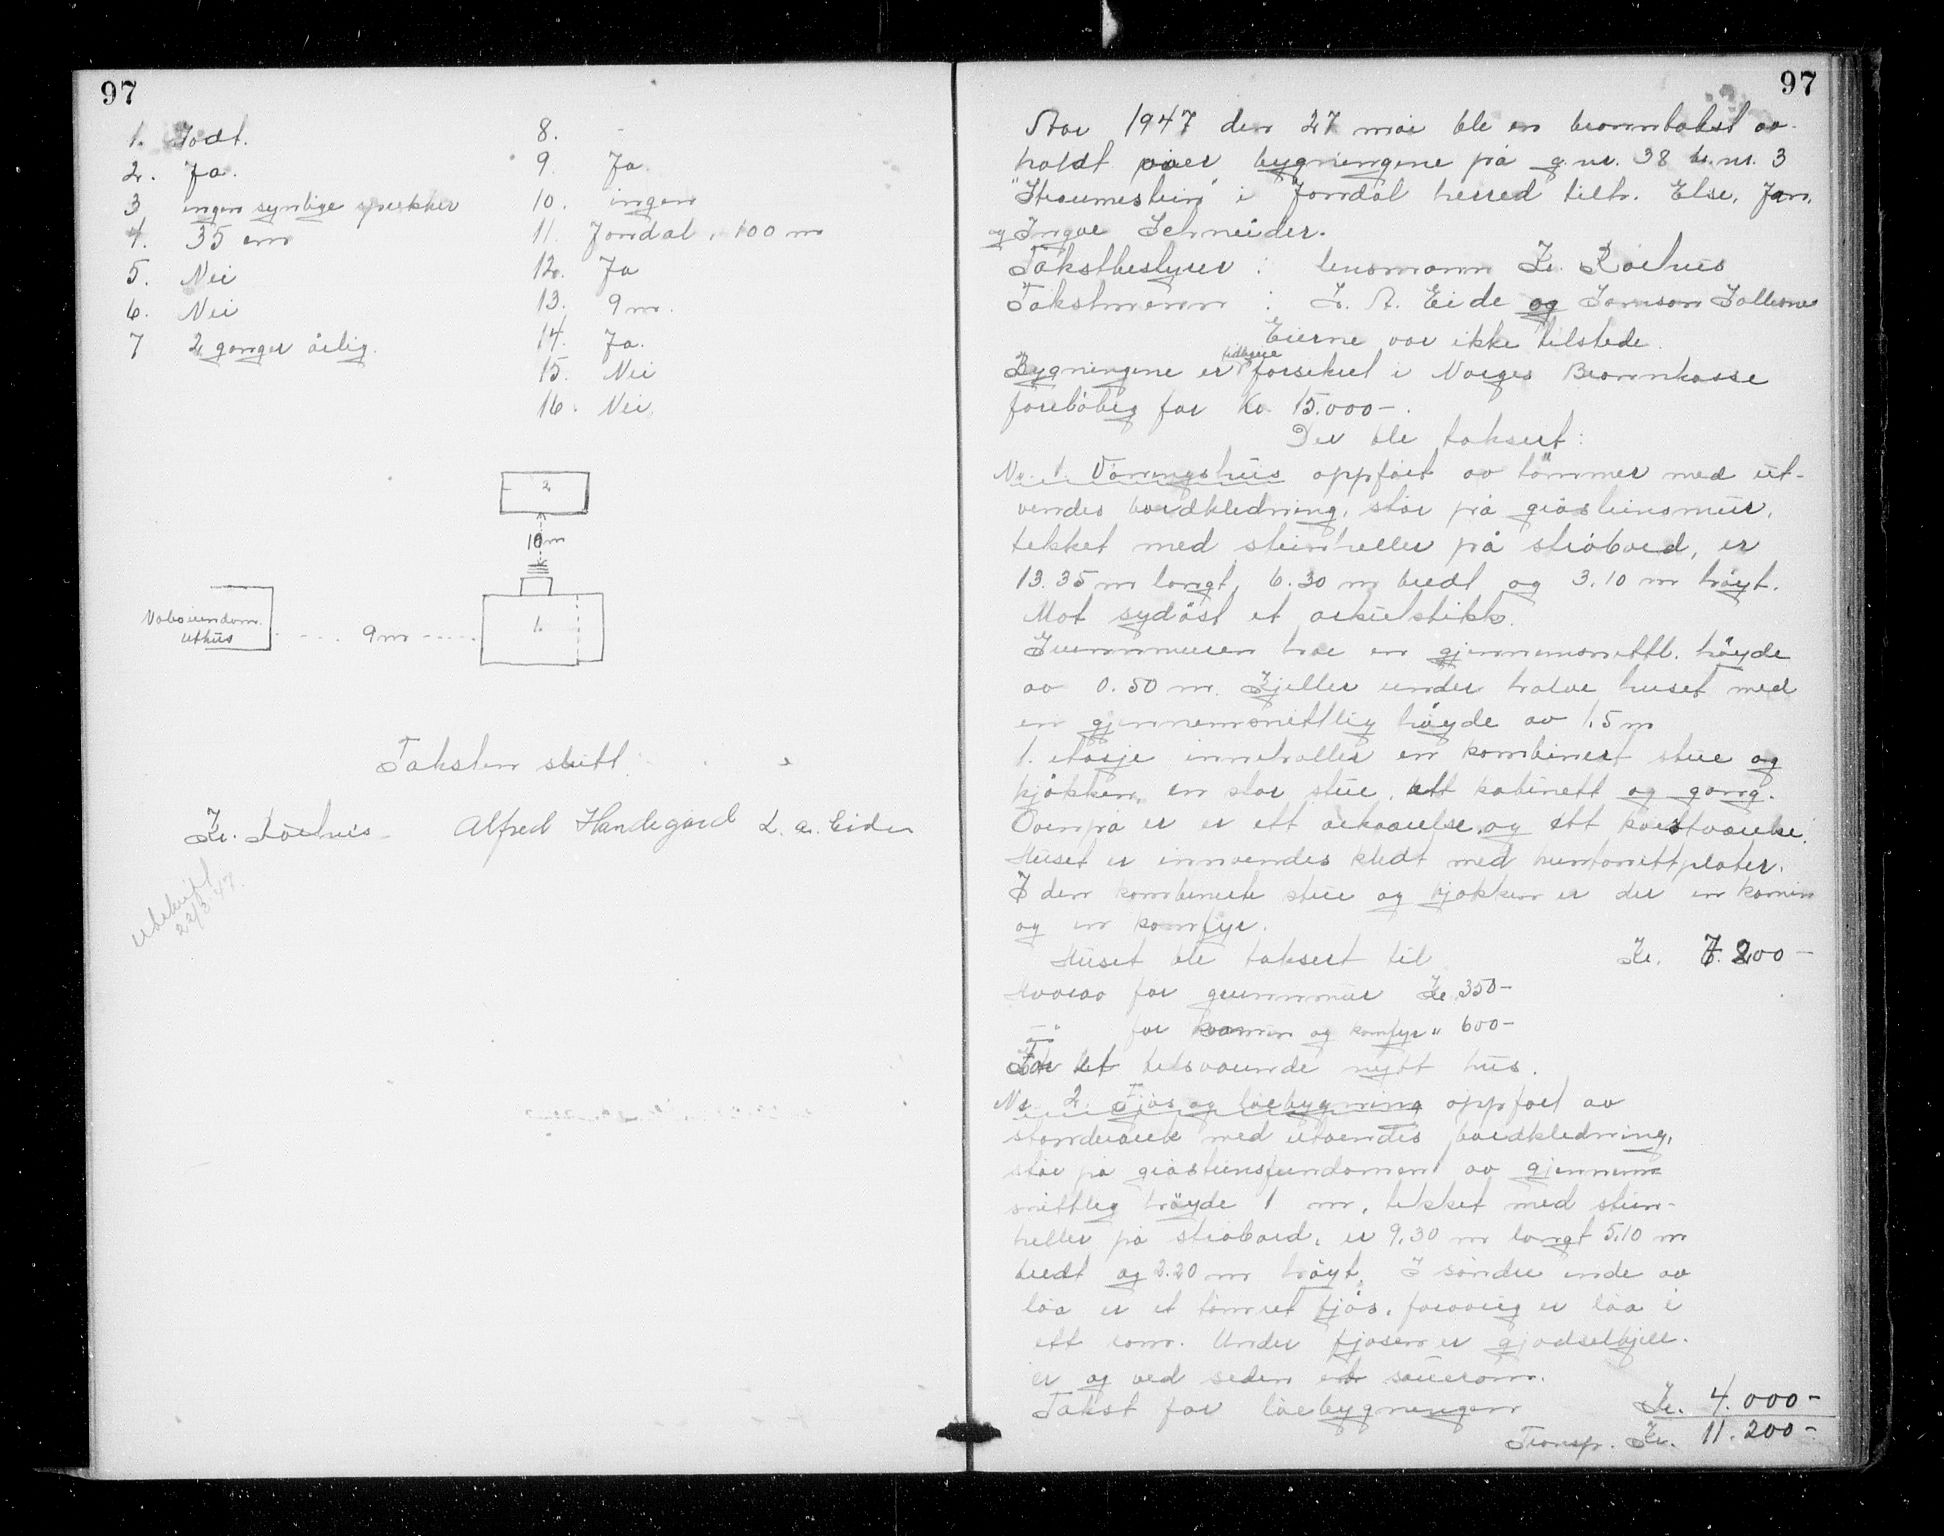 97
1. Tødt.
2. Ja.
3 ingen synlige sprekker
4. 35 cm
5. Nei
6. Nei
7 2 ganger årlig.
8. -
9. Ja.
10. ingen
11. Jondal, 100 m
12. Ja
13. 9 m.
14. Ja.
15. Nei
16. Nei.
2
10 m
Naboeiendom.
uthus
9 m
1.
Taksten slutt.
Kr. Røehus Alfred Handegård L. A. Eide
utskrift
22/8 47.
97
År 1947 den 27 mai ble en branntakst av-
holdt over bygningene på g.nr. 38 br.nr. 3
"Straumestein" i Jondal herred tilh. Else, Jan,
og Ingve Schneider.
Takstbestyrer : lensmann Kr. Røehus
Takstmenn : L. A. Eide og Samson
Eierne var ikke tilstede.
Bygningene er tidligere forsikret i Norges Brannkasse
foreløbig for Kr. 15.000-.
Der ble taksert:
Nr. 1. Våningshus oppført av tømmer med ut-
vendes bordkledning, står på gråsteinsmur,
tekket med steinheller på strøbord, er
13.35 m langt, 6.30 m bredt og 3.10 m høyt.
Mot sydøst et arkutstikk.
Grunnmuren har en gjennemsnittl. høyde
av 0.50 m. Kjeller under halve huset med
en gjennemsnittlig høyde av 1.5 m
1. etasje inneholler en kombinert stue og
kjøkken, en stor stue, ett kabinett og gang.
Ovenpå er er ett arkværelse og ett kvistværelse.
Huset er innvendes kledt med huntonittplater.
I den kombinerte stue og kjøkken er der en kamin
og en komfyr.
Huset ble taksert til Kr. 7.200-
Hvorav for grunnmur Kr. 350-
-"- for kamin og komfyr " 600-
For et tilsvarende nytt hus.
Nr. 2. Fjøs og løebygning oppført av
stenderverk med utvendes bordkledning,
står på gråsteinsfundament av gjennem-
snittlig høyde 1 m, tekket med stein-
heller på strøbord, er 9.30 m langt 5.10 m
bredt og 2.20 m høyt. I søndre ende av
løa er et tømret fjøs, forøvrig er løa i
ett rom. Under fjøsen er gjødselkjell-
er og ved siden et sauerom.
Takst for løebygningen Kr. 4.000-
Transp. Kr. 11.200-